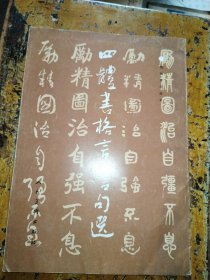 勵精圖治自彊不息
勵精圖治自強不息
四體書格言百句選
勵精圖治自强不息
励精图治自强不息